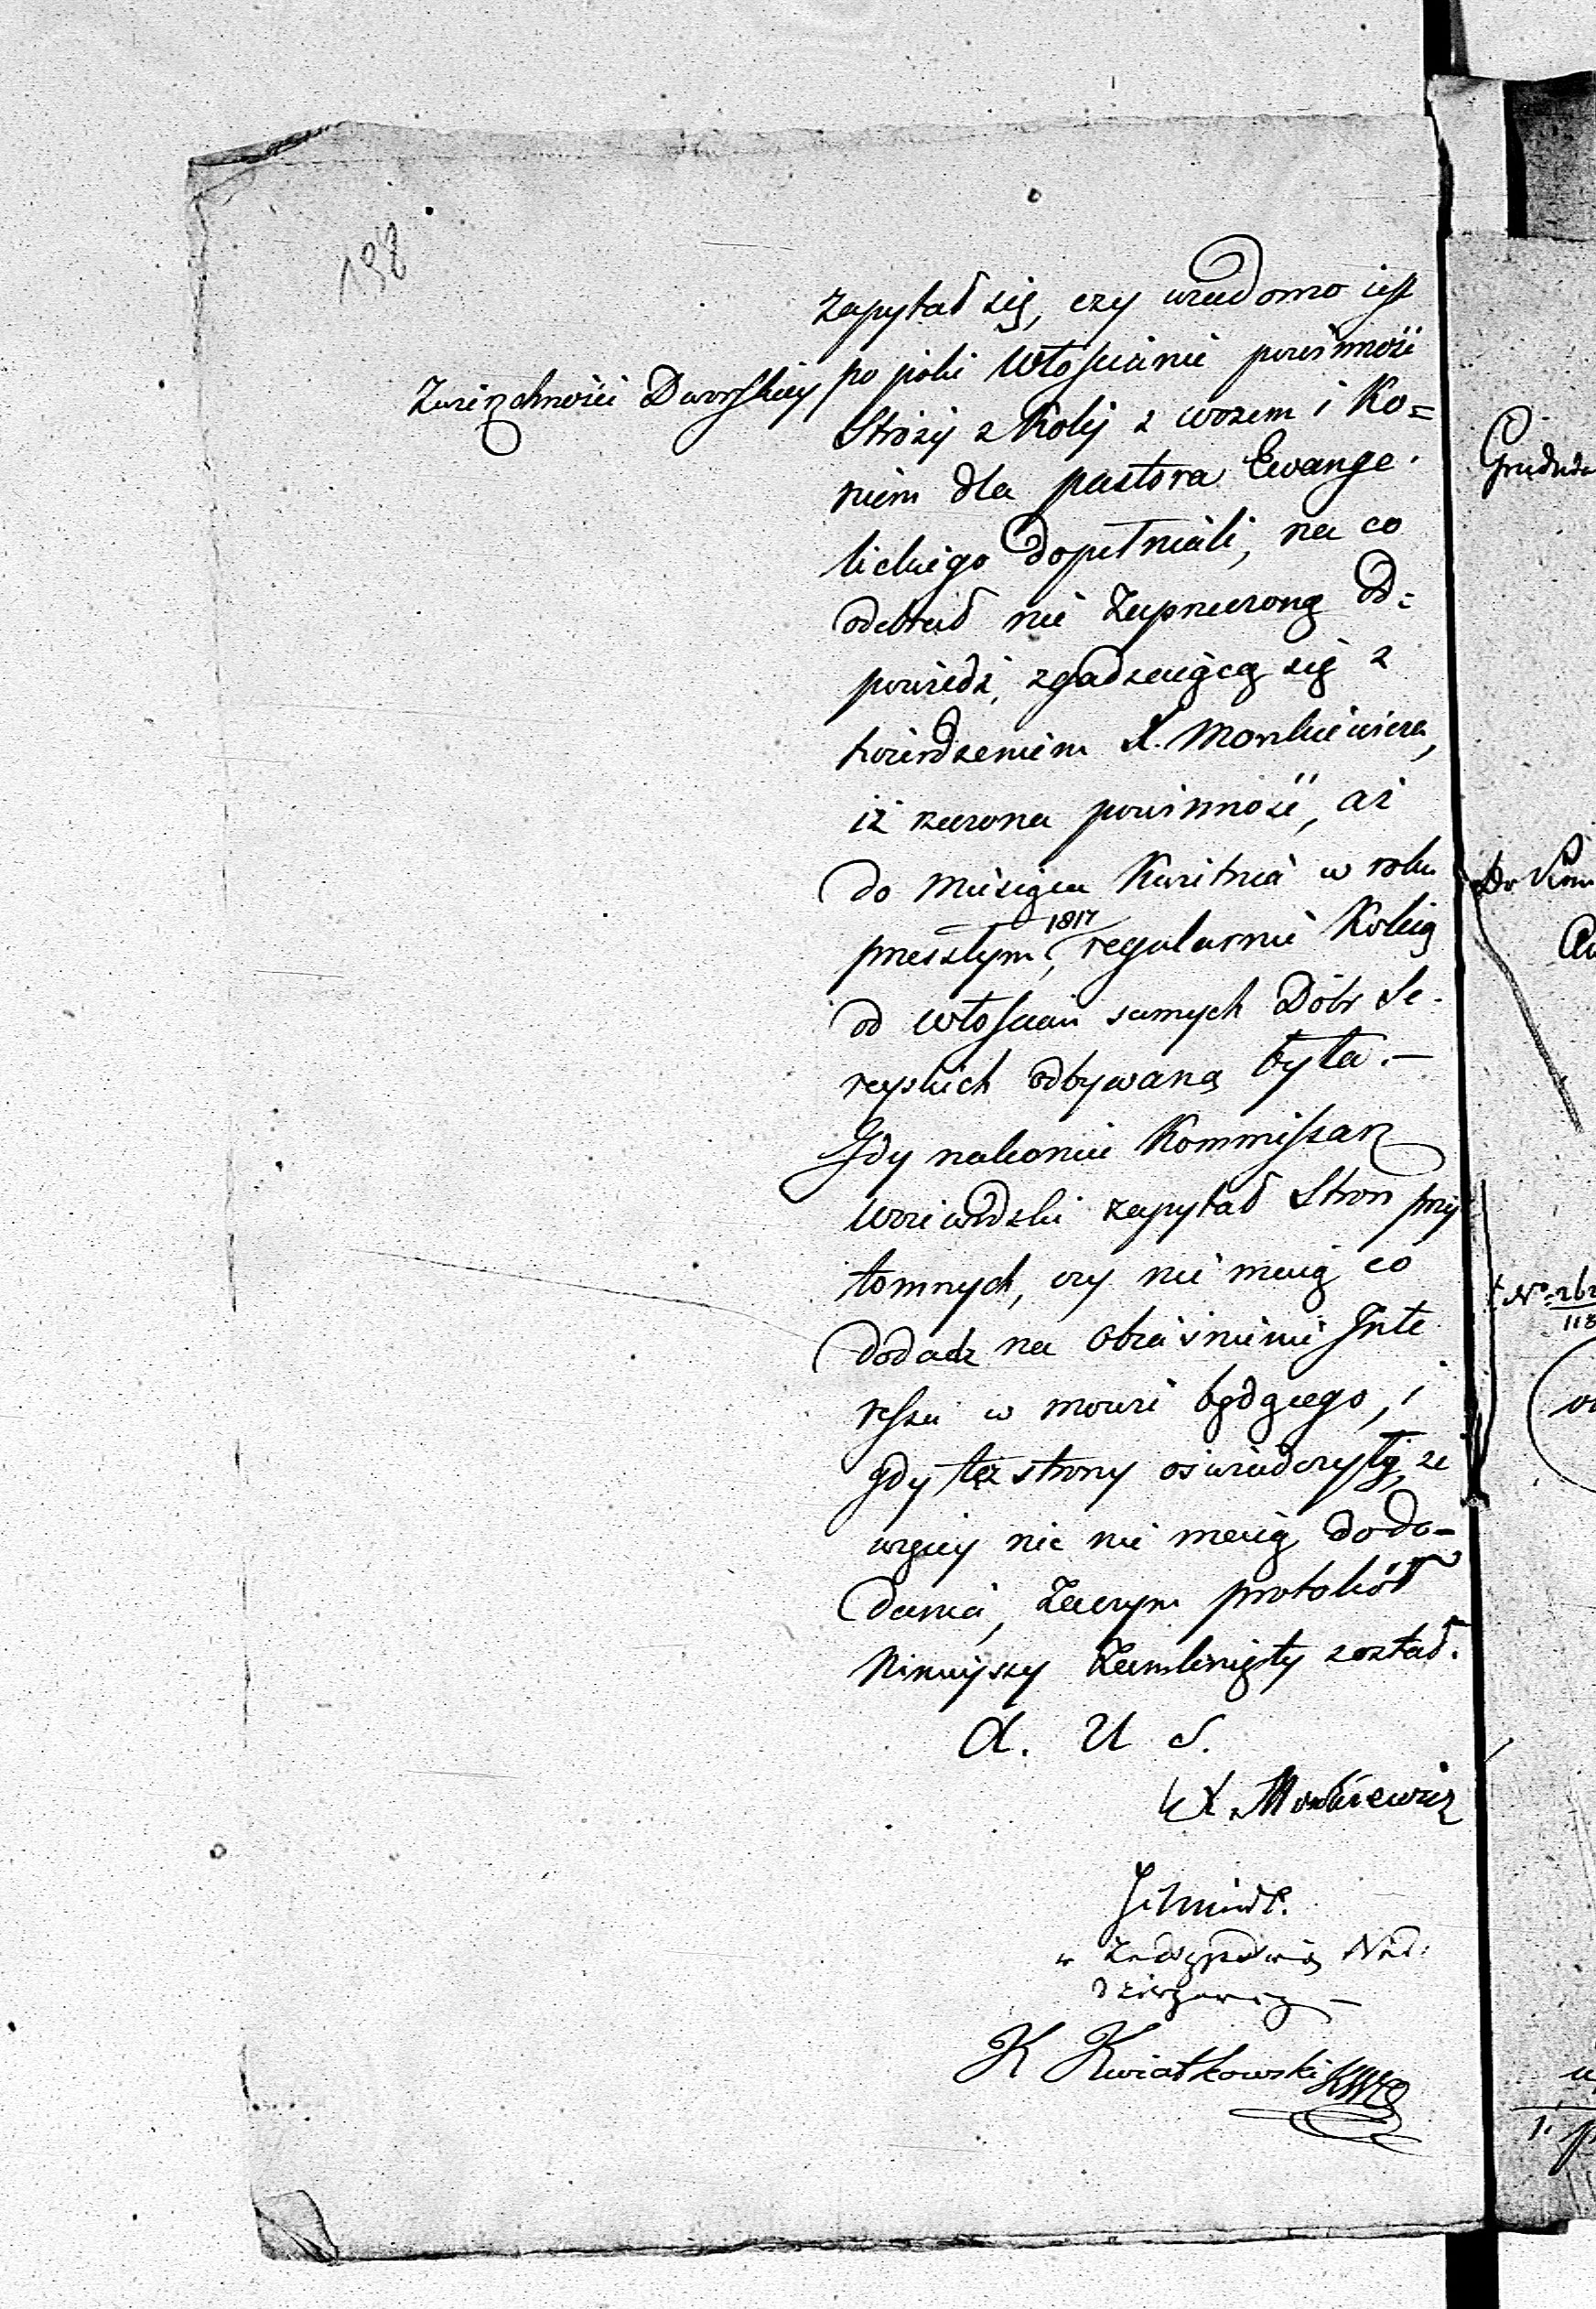 198
zapytał się, czy wiadomo iest
Zwierzchności Dworskiey po joki Włościanie powinność
Stróży z Koleij z wozem i Ko=
niem dla pastora Ewange-
lickiego dopełniali, na co
odebrał nie zaprzeczoną od=
powiedź, zgadzaiącą się z
twierdzeniem X. Monkiewicza,
iż rzeczona powinność, aż
do Miesiąca Kwietnia w roku
przeszłym, 1817 regularnie Koleią
od Włościan samych Dóbr Se-
reyskich odbywaną była. —
Gdy nakoniec Kommissarz
Woiewódzki zapytał Stron przy
tomnych, czy nie maią co
dodadź na obiaśnienie Inte
ressu w mowie będącego, i
gdy też strony oświadczyły, że
więcey nic nie maią do do-
dania, zaczym protokół
Ninieyszy zamknięty został.
A. U. S.
X. Monkiewicz
Schmidt.
w
K Kwiatkowski KWA
Do
No 262
118